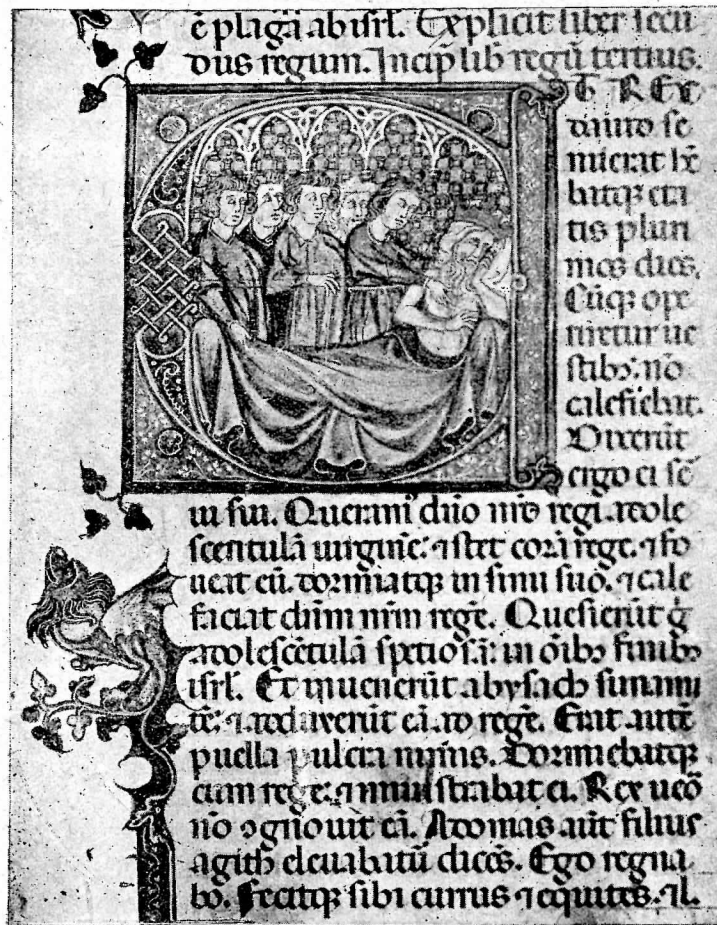 ē plagā ab isrl. Explicit liber secū
dus regum. Incip lib regū tertius.
T REX
dauid se
nuerat hē
batqꝫ eta
tis pluri
mos dies.
Cūqꝫ ope
riretur ue
stibꝫ: nō
calefiebat.
Dixerūt
ergo ei ser
ui sui. Queram᾽ dūo nr̄o regi adole
scentulā uirginē: ⁊ stet corā rege. ⁊ fo
ueat eū. dormiatqꝫ in sinu suo. ⁊ cale
faciat dūm nr̄m regē. Quesierūt ḡ
adolescētulā spetiosā: in oībꝫ finibꝫ
isrl. Et inuenerūt abysach sunami
tē: ⁊ adduxerūt eā ad regē. Erat autē
puella pulcra nimis. Dormiebatqꝫ
cum rege: ⁊ ministrabat ei. Rex ueō
nō ꝯgnouit eā. Adonias aūt filius
agith eleuabatū dicēs. Ego regna
bo. Fecitqꝫ sibi currus ⁊ equites. ⁊ l.